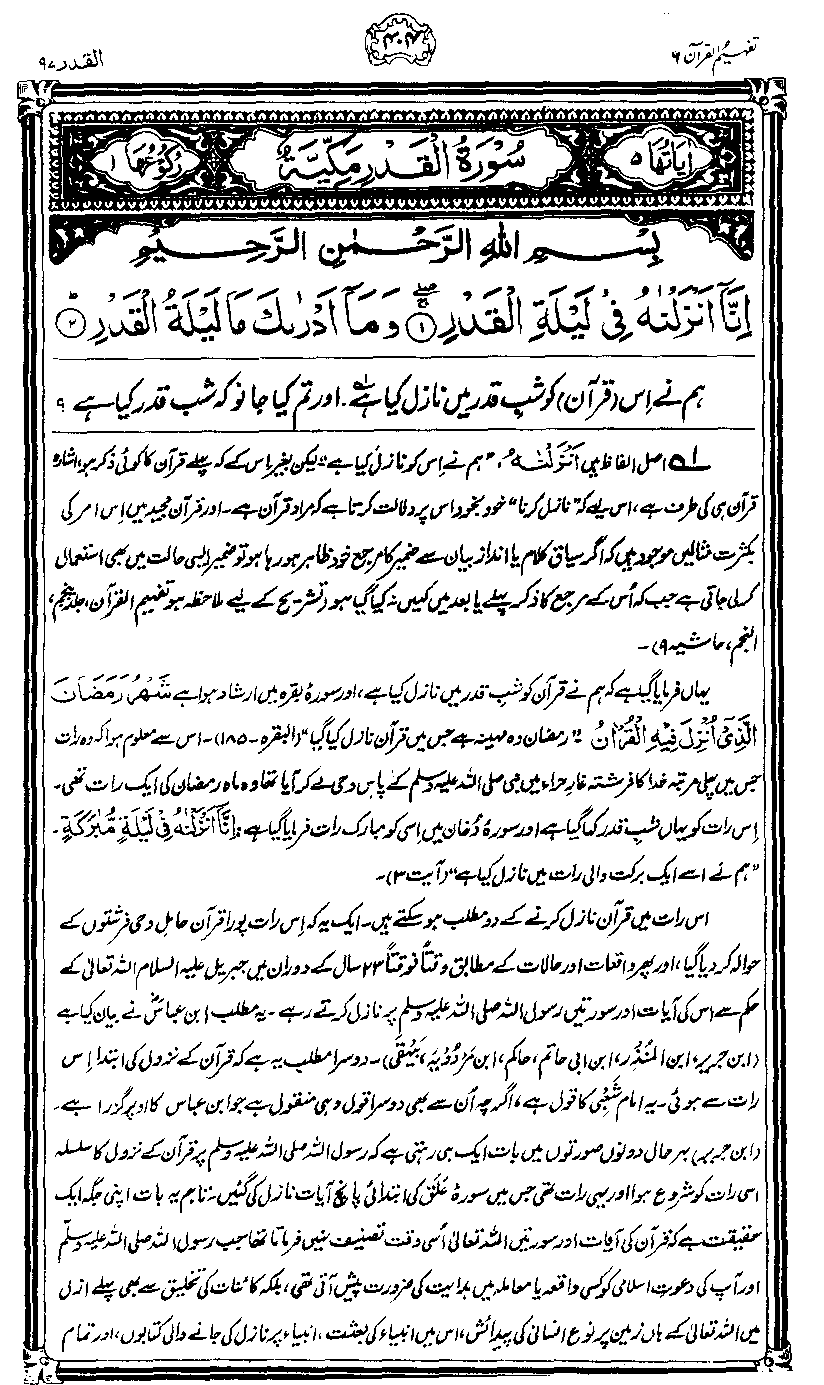 تفہیم القرآن ۶
۴۰۴
القدر ۹۷
اٰیَاتُهَا ۵
سُوْرَةُ الْقَدْرِ مَكِّيَّةٌ
رُكُوْعُهَا ۱
بِسْمِ اللّٰهِ الرَّحْمٰنِ الرَّحِيْمِ
اِنَّاۤ اَنْزَلْنٰهُ فِیْ لَیْلَةِ الْقَدْرِ ۝۱ وَمَاۤ اَدْرٰىكَ مَا لَیْلَةُ الْقَدْرِ ۝۲
ہم نے اِس (قرآن) کو شبِ قدر میں نازل کیا ہے۔ اور تم کیا جانو کہ شبِ قدر کیا ہے ؟
۱ اصل الفاظ ہیں اَنْزَلْنٰهُ، "ہم نے اس کو نازل کیا ہے" لیکن بغیر اس کے کہ پہلے قرآن کا کوئی ذکر ہو، اشارہ
قرآن ہی کی طرف ہے، اس لیے کہ "نازل کرنا" خود بخود اس پر دلالت کرتا ہے کہ مراد قرآن ہے۔ اور قرآن مجید میں اِس امر کی
بکثرت مثالیں موجود ہیں کہ اگر سیاق کلام یا اندازِ بیان سے ضمیر کا مرجع خود ظاہر ہو رہا ہو تو ضمیر ایسی حالت میں بھی استعمال
کر لی جاتی ہے جب کہ اُس کے مرجع کا ذکر پہلے یا بعد میں کہیں نہ کیا گیا ہو (تشریح کے لیے ملاحظہ ہو تفہیم القرآن، جلد پنجم،
النجم، حاشیہ ۹)۔
یہاں فرمایا گیا ہے کہ ہم نے قرآن کو شب قدر میں نازل کیا ہے، اور سورۂ بقرہ میں ارشاد ہوا ہے شَهْرُ رَمَضَانَ
الَّذِیْۤ اُنْزِلَ فِیْهِ الْقُرْاٰنُ "رمضان وہ مہینہ ہے جس میں قرآن نازل کیا گیا" (البقرہ۔ ۱۸۵)۔ اس سے معلوم ہوا کہ وہ رات
جس میں پہلی مرتبہ خدا کا فرشتہ غارِ حراء میں نبی صلی اللہ علیہ وسلم کے پاس وحی لے کر آیا تھا وہ ماہ رمضان کی ایک رات تھی۔
اِس رات کو یہاں شبِ قدر کہا گیا ہے اور سورۂ دُخان میں اِسی کو مبارک رات فرمایا گیا ہے : اِنَّاۤ اَنْزَلْنٰهُ فِیْ لَیْلَةٍ مُّبٰرَكَةٍ۔
"ہم نے اسے ایک برکت والی رات میں نازل کیا ہے" (آیت ۳)۔
اس رات میں قرآن نازل کرنے کے دو مطلب ہو سکتے ہیں۔ ایک یہ کہ اِس رات پورا قرآن حاملِ وحی فرشتوں کے
حوالہ کر دیا گیا، اور پھر واقعات اور حالات کے مطابق وقتاً فوقتاً ۲۳ سال کے دوران میں جبریل علیہ السلام اللہ تعالیٰ کے
حکم سے اس کی آیات اور سورتیں رسول اللہ صلی اللہ علیہ وسلم پر نازل کرتے رہے۔ یہ مطلب ابن عباسؓ نے بیان کیا ہے
(ابن جریر، ابن المُنذِر، ابن ابی حاتم، حاکم، ابن مَرْدُوْیَہ، بَیْہَقِی)۔ دوسرا مطلب یہ ہے کہ قرآن کے نزول کی ابتدا اِس
رات سے ہوئی۔ یہ امام شَعْبِی کا قول ہے، اگرچہ اُن سے بھی دوسرا قول وہی منقول ہے جو ابن عباس کا اوپر گزرا ہے۔
(ابن جریر) بہر حال دونوں صورتوں میں بات ایک ہی رہتی ہے کہ رسول اللہ صلی اللہ علیہ وسلم پر قرآن کے نزول کا سلسلہ
اسی رات کو شروع ہوا اور یہی رات تھی جس میں سورۂ عَلَق کی ابتدائی پانچ آیات نازل کی گئیں۔ تاہم یہ بات اپنی جگہ ایک
حقیقت ہے کہ قرآن کی آیات اور سورتیں اللہ تعالیٰ اُسی وقت تصنیف نہیں فرماتا تھا جب رسول اللہ صلی اللہ علیہ وسلم
اور آپ کی دعوتِ اسلامی کو کسی واقعہ یا معاملہ میں ہدایت کی ضرورت پیش آتی تھی، بلکہ کائنات کی تخلیق سے بھی پہلے ازل
میں اللہ تعالیٰ کے ہاں زمین پر نوعِ انسانی کی پیدائش، اس میں انبیاء کی بعثت، انبیاء پر نازل کی جانے والی کتابوں، اور تمام